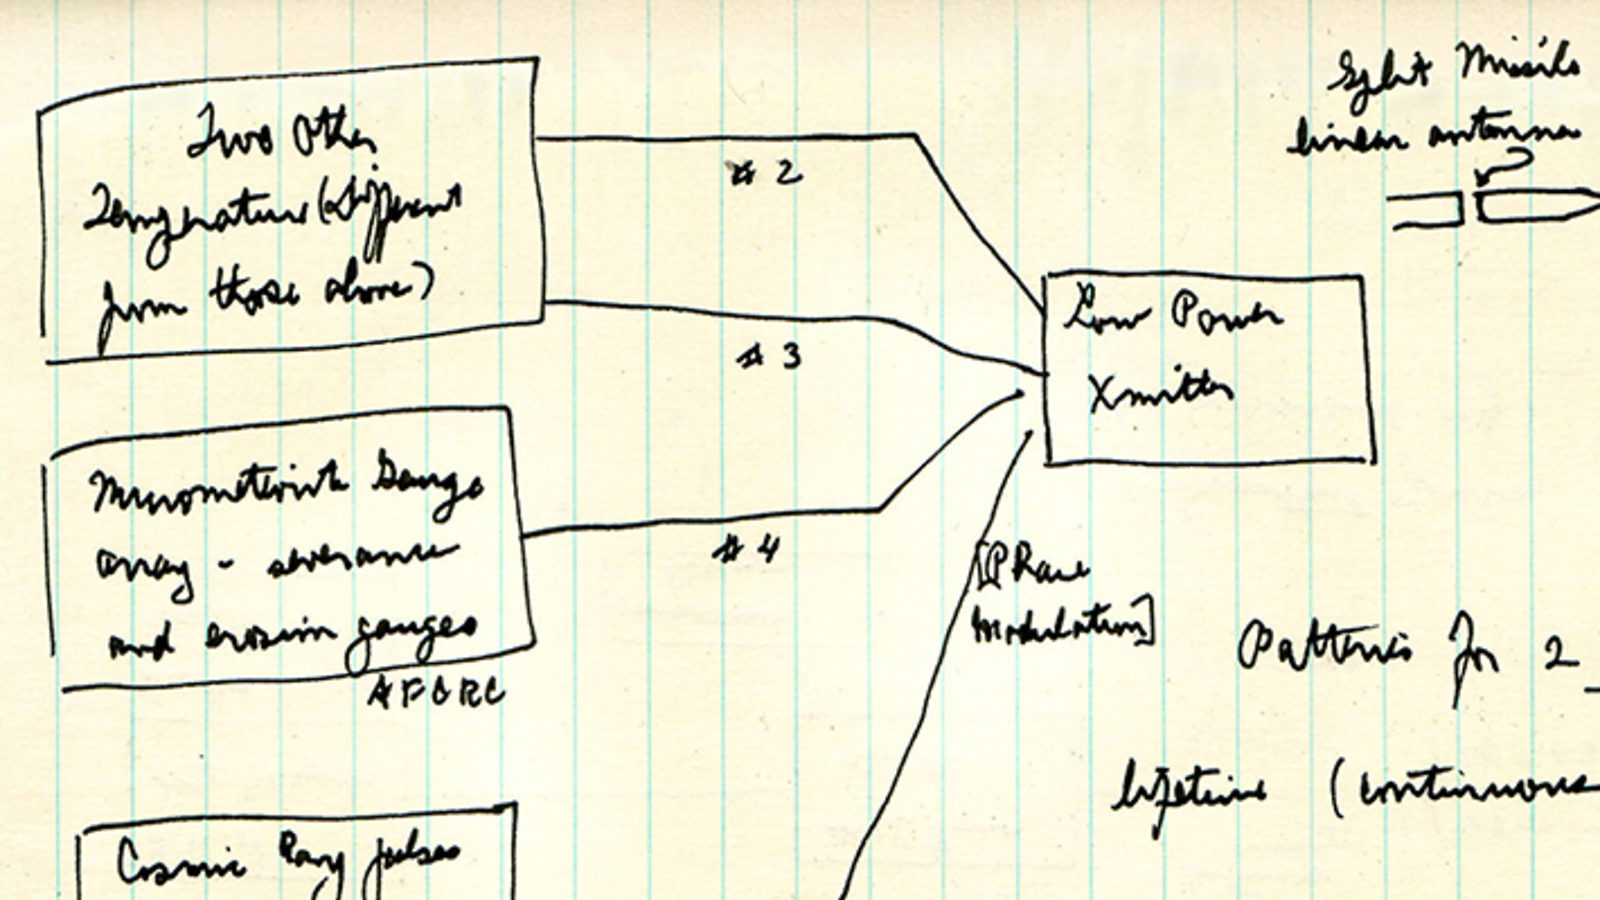 Two Other
Temperature (different
from those above)
# 2
# 3
Split Missile
linear antenna
Low Power
Xmitter
Micrometeorite Gauge
array - severance
and erosion gauges
AFCRC
# 4
[Phase
Modulation]
Batteries for 2
lifetime (continuous
Cosmic Ray pulses